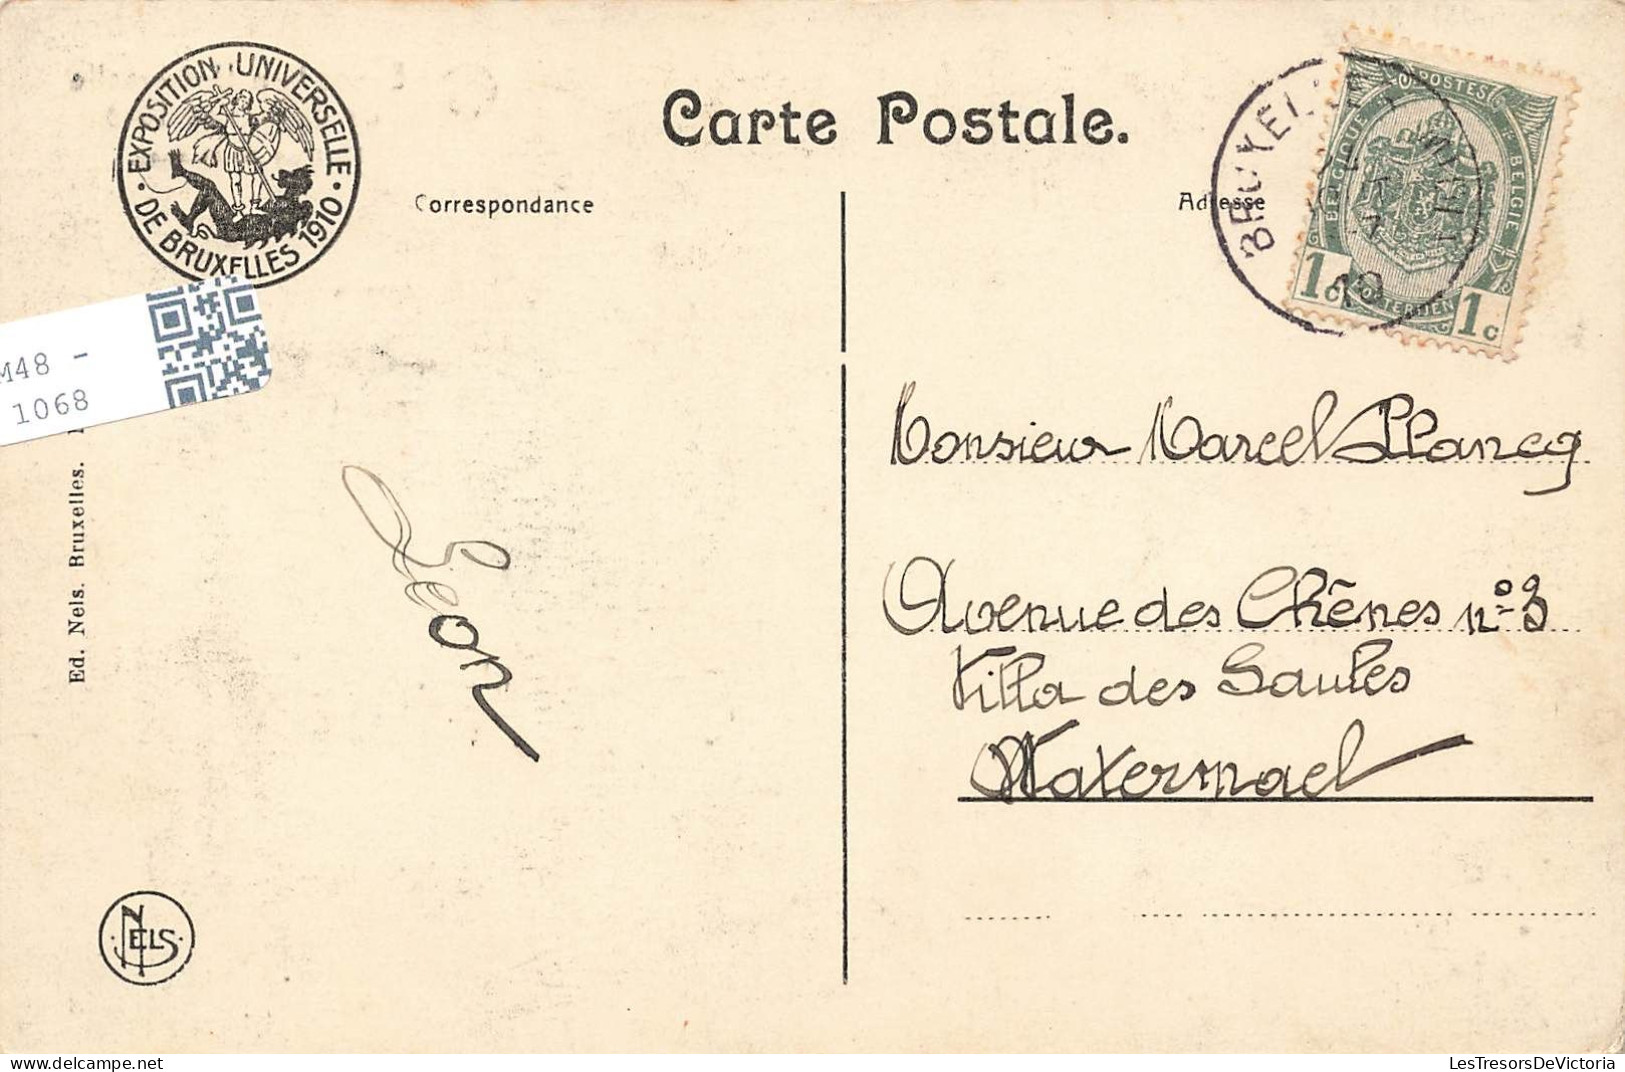 EXPOSITION UNIVERSELLE
DE BRUXELLES 1910
Carte Postale.
Correspondance
Adresse
BRUXELLES
10
POSTES
BELGIQUE
BELGIË
POSTERIJEN
1c
1c
M48 -
1068
Ed. Nels. Bruxelles.
Léon
Monsieur Marcel Plancq
Avenue des Chênes nº 3
Villa des Saules
Watermael
NELS
LesTresorsDeVictoria